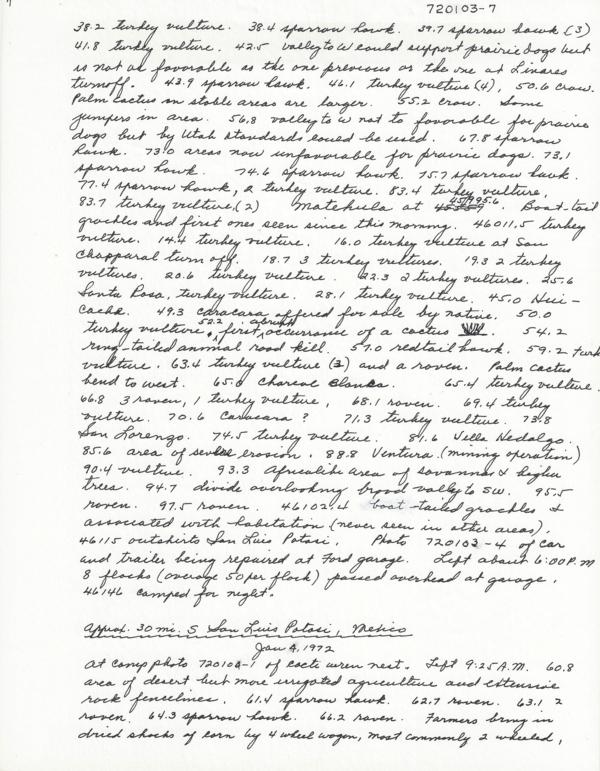 720103-7
38.2 turkey vulture. 38.4 sparrow hawk. 39.7 sparrow hawk (3)
41.8 turkey vulture. 42.5 valley to W could support prairie dogs but
is not as favorable as the one previous or the one at Linares
turnoff. 43.9 sparrow hawk. 46.1 turkey vulture (4), 50.6 crow.
Palm cactus in stable areas are larger. 55.2 crow. Some
junipers in area. 56.8 valley to W not to favorable for prairie
dogs but by Utah standards could be used. 67.8 sparrow
hawk. 73.0 areas now unfavorable for prairie dogs. 73.1
sparrow hawk. 74.6 sparrow hawk. 75.7 sparrow hawk.
77.4 sparrow hawk, 2 turkey vulture. 83.4 turkey vulture,
83.7 turkey vulture (2) Matehula at 45995.6. Boat-tail
grackles and first ones seen since this morning. 46011.5 turkey
vulture. 14.4 turkey vulture. 16.0 turkey vulture at San
Chapparal turn off. 18.7 3 turkey vultures. 19.3 2 turkey
vultures. 20.6 turkey vulture. 22.3 2 turkey vultures. 25.6
Santa Rosa, turkey vulture. 28.1 turkey vulture. 45.0 Hui-
cache. 49.3 caracara offered for sale by native. 50.0
turkey vulture. 52.2 first abrupt occurrance of a cactus. 54.2
ring-tailed animal road kill. 57.0 redtail hawk. 59.2 turk
vulture. 63.4 turkey vulture (3) and a raven. Palm cactus
bend to west. 65.0 Charcac Blanca. 65.4 turkey vulture.
66.8 3 raven, 1 turkey vulture, 68.1 raven. 69.4 turkey
vulture. 70.6 Caracara? 71.3 turkey vulture. 73.8
San Lorenzo. 74.5 turkey vulture. 81.6 Villa Hedalgo.
85.6 area of severe erosion. 88.8 Ventura (mining operation)
90.4 vulture. 93.3 Africalike area of savannas & higher
trees. 94.7 divide overlooking broad valley to SW. 95.5
raven. 97.5 raven. 46102.4 boat-tailed grackles &
associated with habitation (never seen in other areas).
46115 outskirts San Luis Potasi. Photo 720103-4 of car
and trailer being repaired at Ford garage. Left about 6:00 P.M
8 flocks (average 50 per flock) passed overhead at garage.
46146 camped for night.
Approx. 30 mi. S San Luis Potasi, Mexico
Jan 4, 1972
At camp photo 720104-1 of cacti wren nest. Left 9:25 A.M. 60.8
area of desert but more irrigated agriculture and extensive
rock fencelines. 61.4 sparrow hawk. 62.7 raven. 63.1 2
raven. 64.3 sparrow hawk. 66.2 raven. Farmers bring in
dried shocks of corn by 4 wheel wagon, most commonly 2 wheeled,